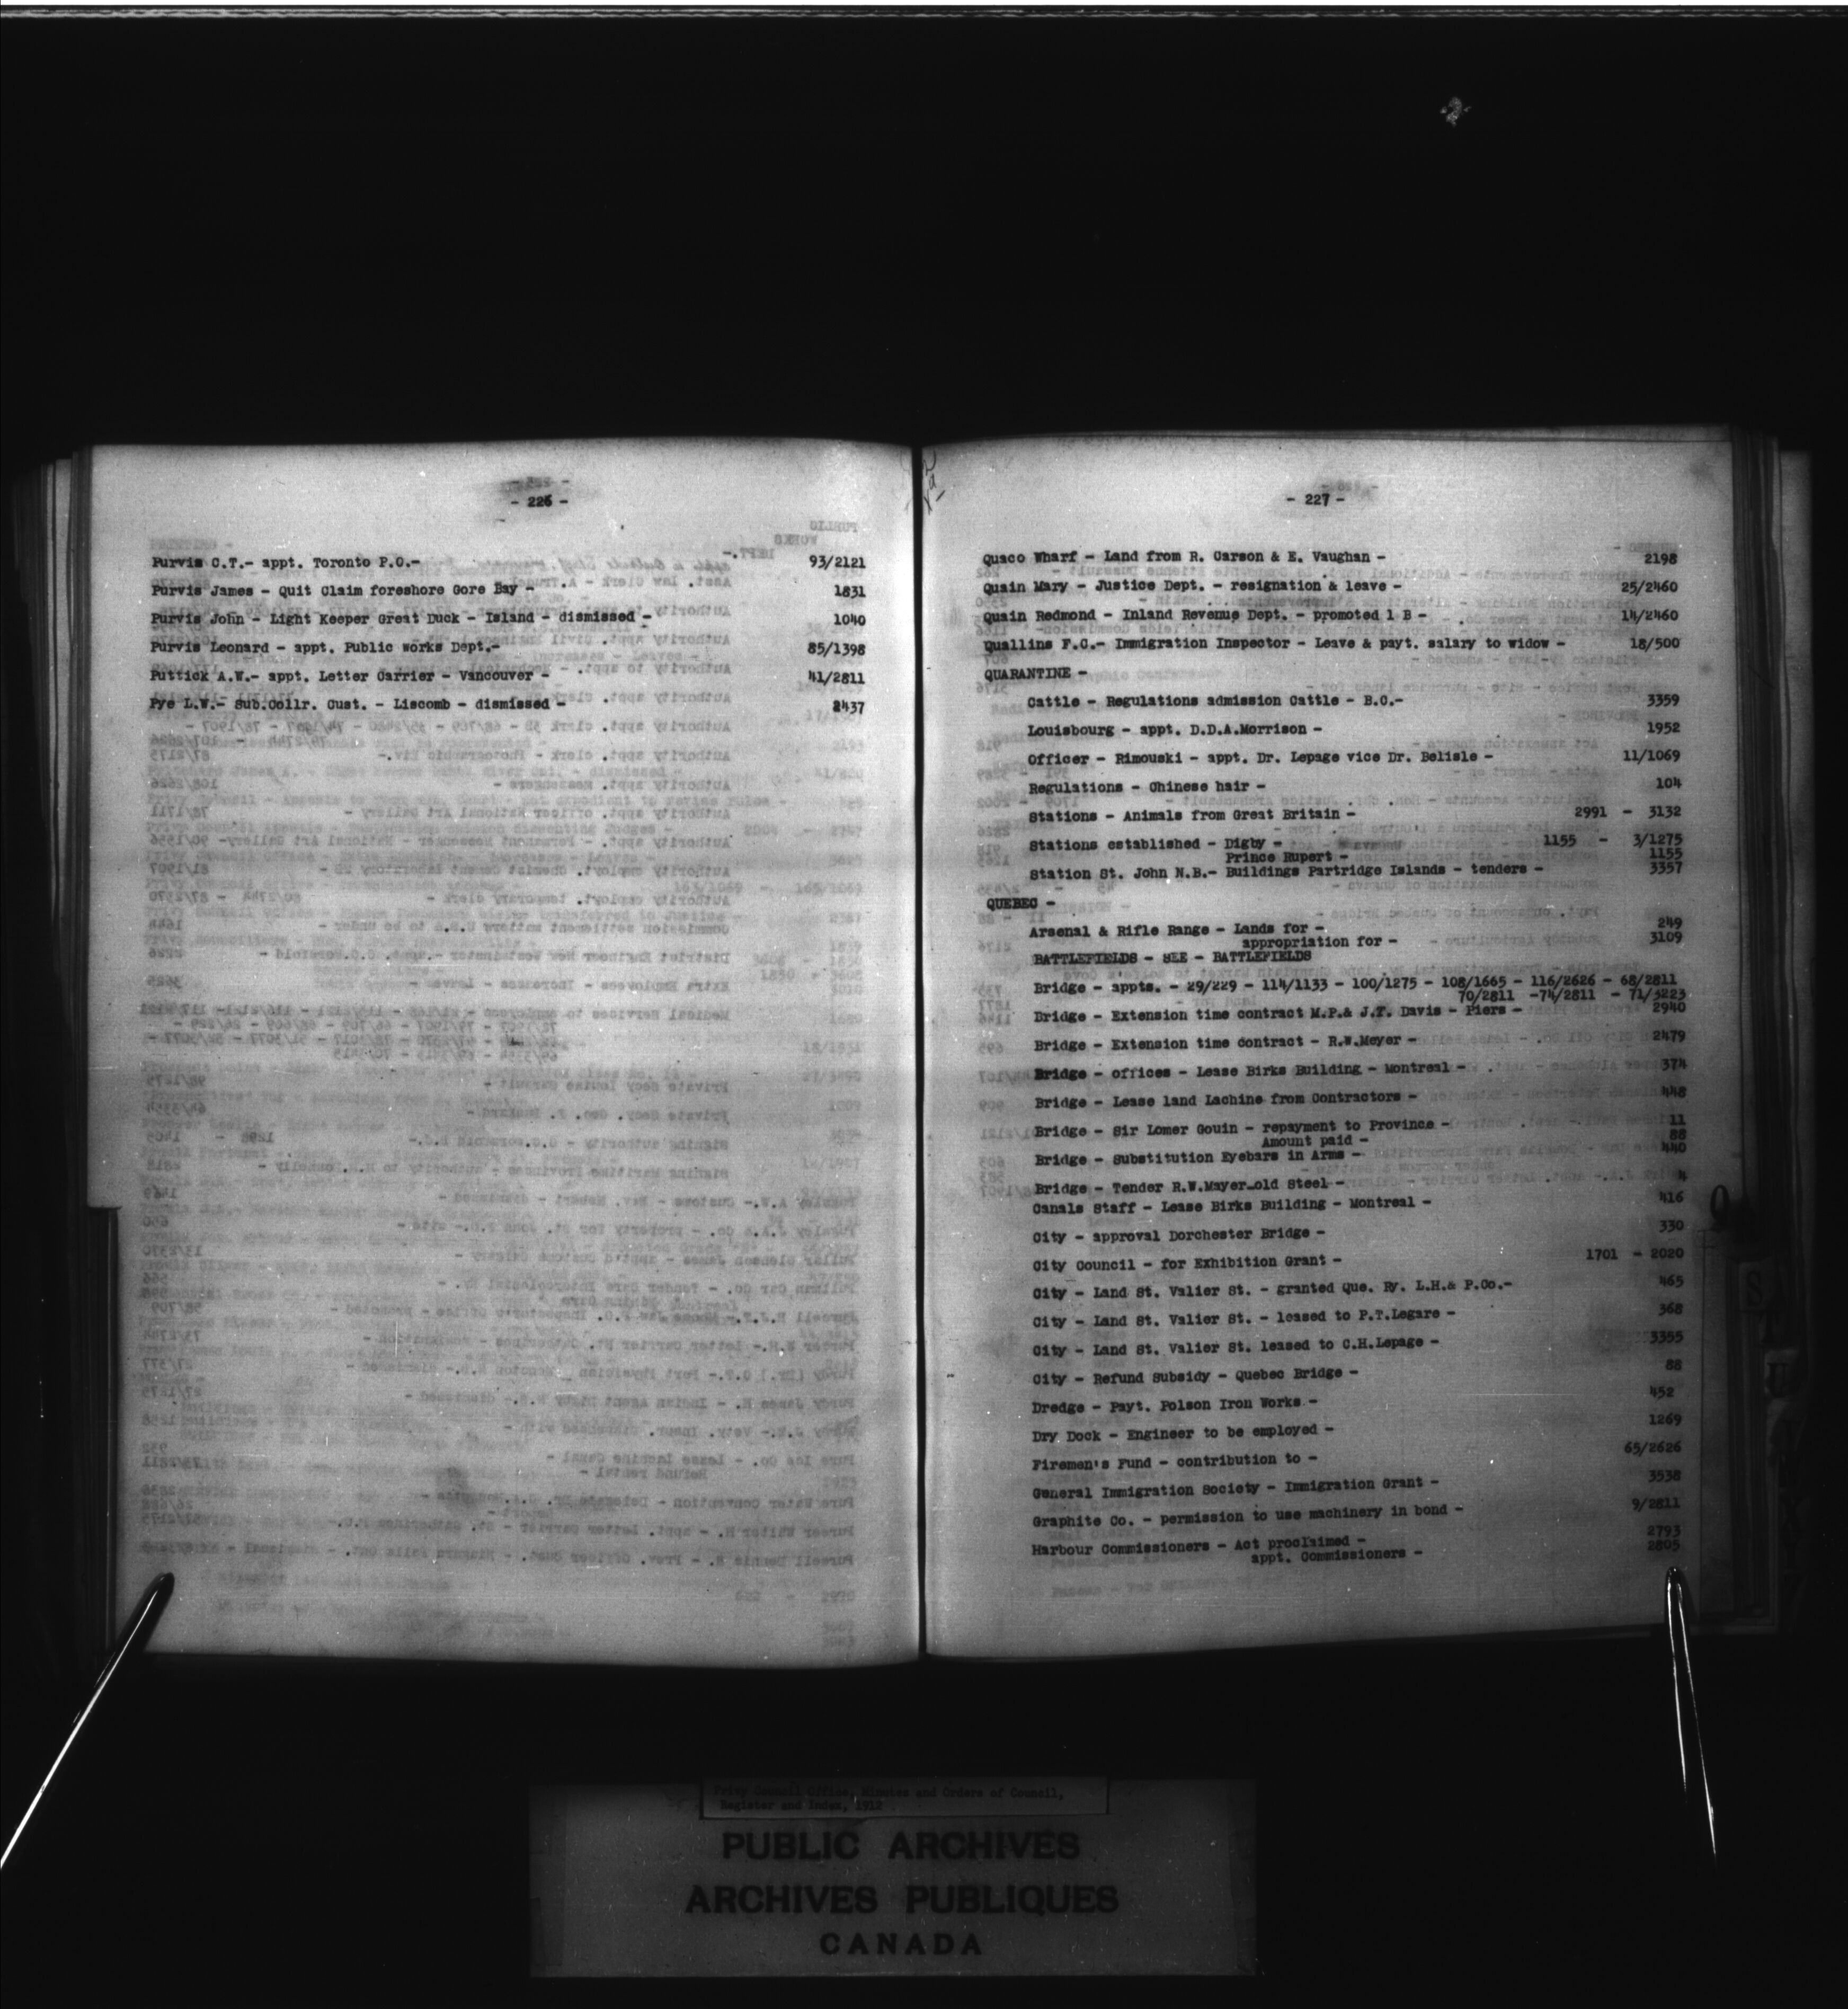 - 226 -
Purvis C.T.- appt. Toronto P.O.- 93/2121
Purvis James - Quit Claim foreshore Gore Bay - 1831
Purvis John - Light Keeper Great Duck - Island - dismissed - 1040
Purvis Leonard - appt. Public works Dept.- 85/1398
Puttick A.W.- appt. Letter Carrier - Vancouver - 41/2811
Pye L.W.- Sub.Collr. Cust. - Liscomb - dismissed - 2437
- 227 -
Quaco Wharf - Land from R. Carson & E. Vaughan - 2198
Quain Mary - Justice Dept. - resignation & leave - 25/2460
Quain Redmond - Inland Revenue Dept. - promoted 1 B - 14/2460
Quallins F.C.- Immigration Inspector - Leave & payt. salary to widow - 18/500
QUARANTINE -
Cattle - Regulations admission Cattle - B.C.- 3359
Louisbourg - appt. D.D.A.Morrison - 1952
Officer - Rimouski - appt. Dr. Lepage vice Dr. Belisle - 11/1069
Regulations - Chinese hair - 104
Stations - Animals from Great Britain - 2991 - 3132
Stations established - Digby - 1155 - 3/1275
Prince Rupert - 1155
Station St. John N.B.- Buildings Partridge Islands - tenders - 3357
QUEBEC -
Arsenal & Rifle Range - Lands for - 249
appropriation for - 3109
BATTLEFIELDS - SEE - BATTLEFIELDS
Bridge - appts. - 29/229 - 114/1133 - 100/1275 - 108/1665 - 116/2626 - 68/2811
70/2811 -74/2811 - 71/3223
Bridge - Extension time contract M.P.& J.T. Davis - Piers - 2940
Bridge - Extension time contract - R.W.Meyer - 2479
Bridge - offices - Lease Birks Building - Montreal - 374
Bridge - Lease land Lachine from Contractors - 448
Bridge - Sir Lomer Gouin - repayment to Province - 11
Amount paid - 88
Bridge - Substitution Eyebars in Arms - 440
Bridge - Tender R.W.Mayer-old Steel - 4
Canals Staff - Lease Birks Building - Montreal - 416
City - approval Dorchester Bridge - 330
City Council - for Exhibition Grant - 1701 - 2020
City - Land St. Valier St. - granted Que. Ry. L.H.& P.Co.- 465
City - Land St. Valier St. - leased to P.T.Legare - 368
City - Land St. Valier St. leased to C.H.Lepage - 3355
City - Refund Subsidy - Quebec Bridge - 88
Dredge - Payt. Polson Iron Works - 452
Dry Dock - Engineer to be employed - 1269
Firemen's Fund - contribution to - 65/2626
General Immigration Society - Immigration Grant - 3538
Graphite Co. - permission to use machinery in bond - 9/2811
Harbour Commissioners - Act proclaimed - 2793
appt. Commissioners - 2805
Q
Privy Council Office, Minutes and Orders of Council,
Register and Index, 1912
PUBLIC ARCHIVES
ARCHIVES PUBLIQUES
CANADA